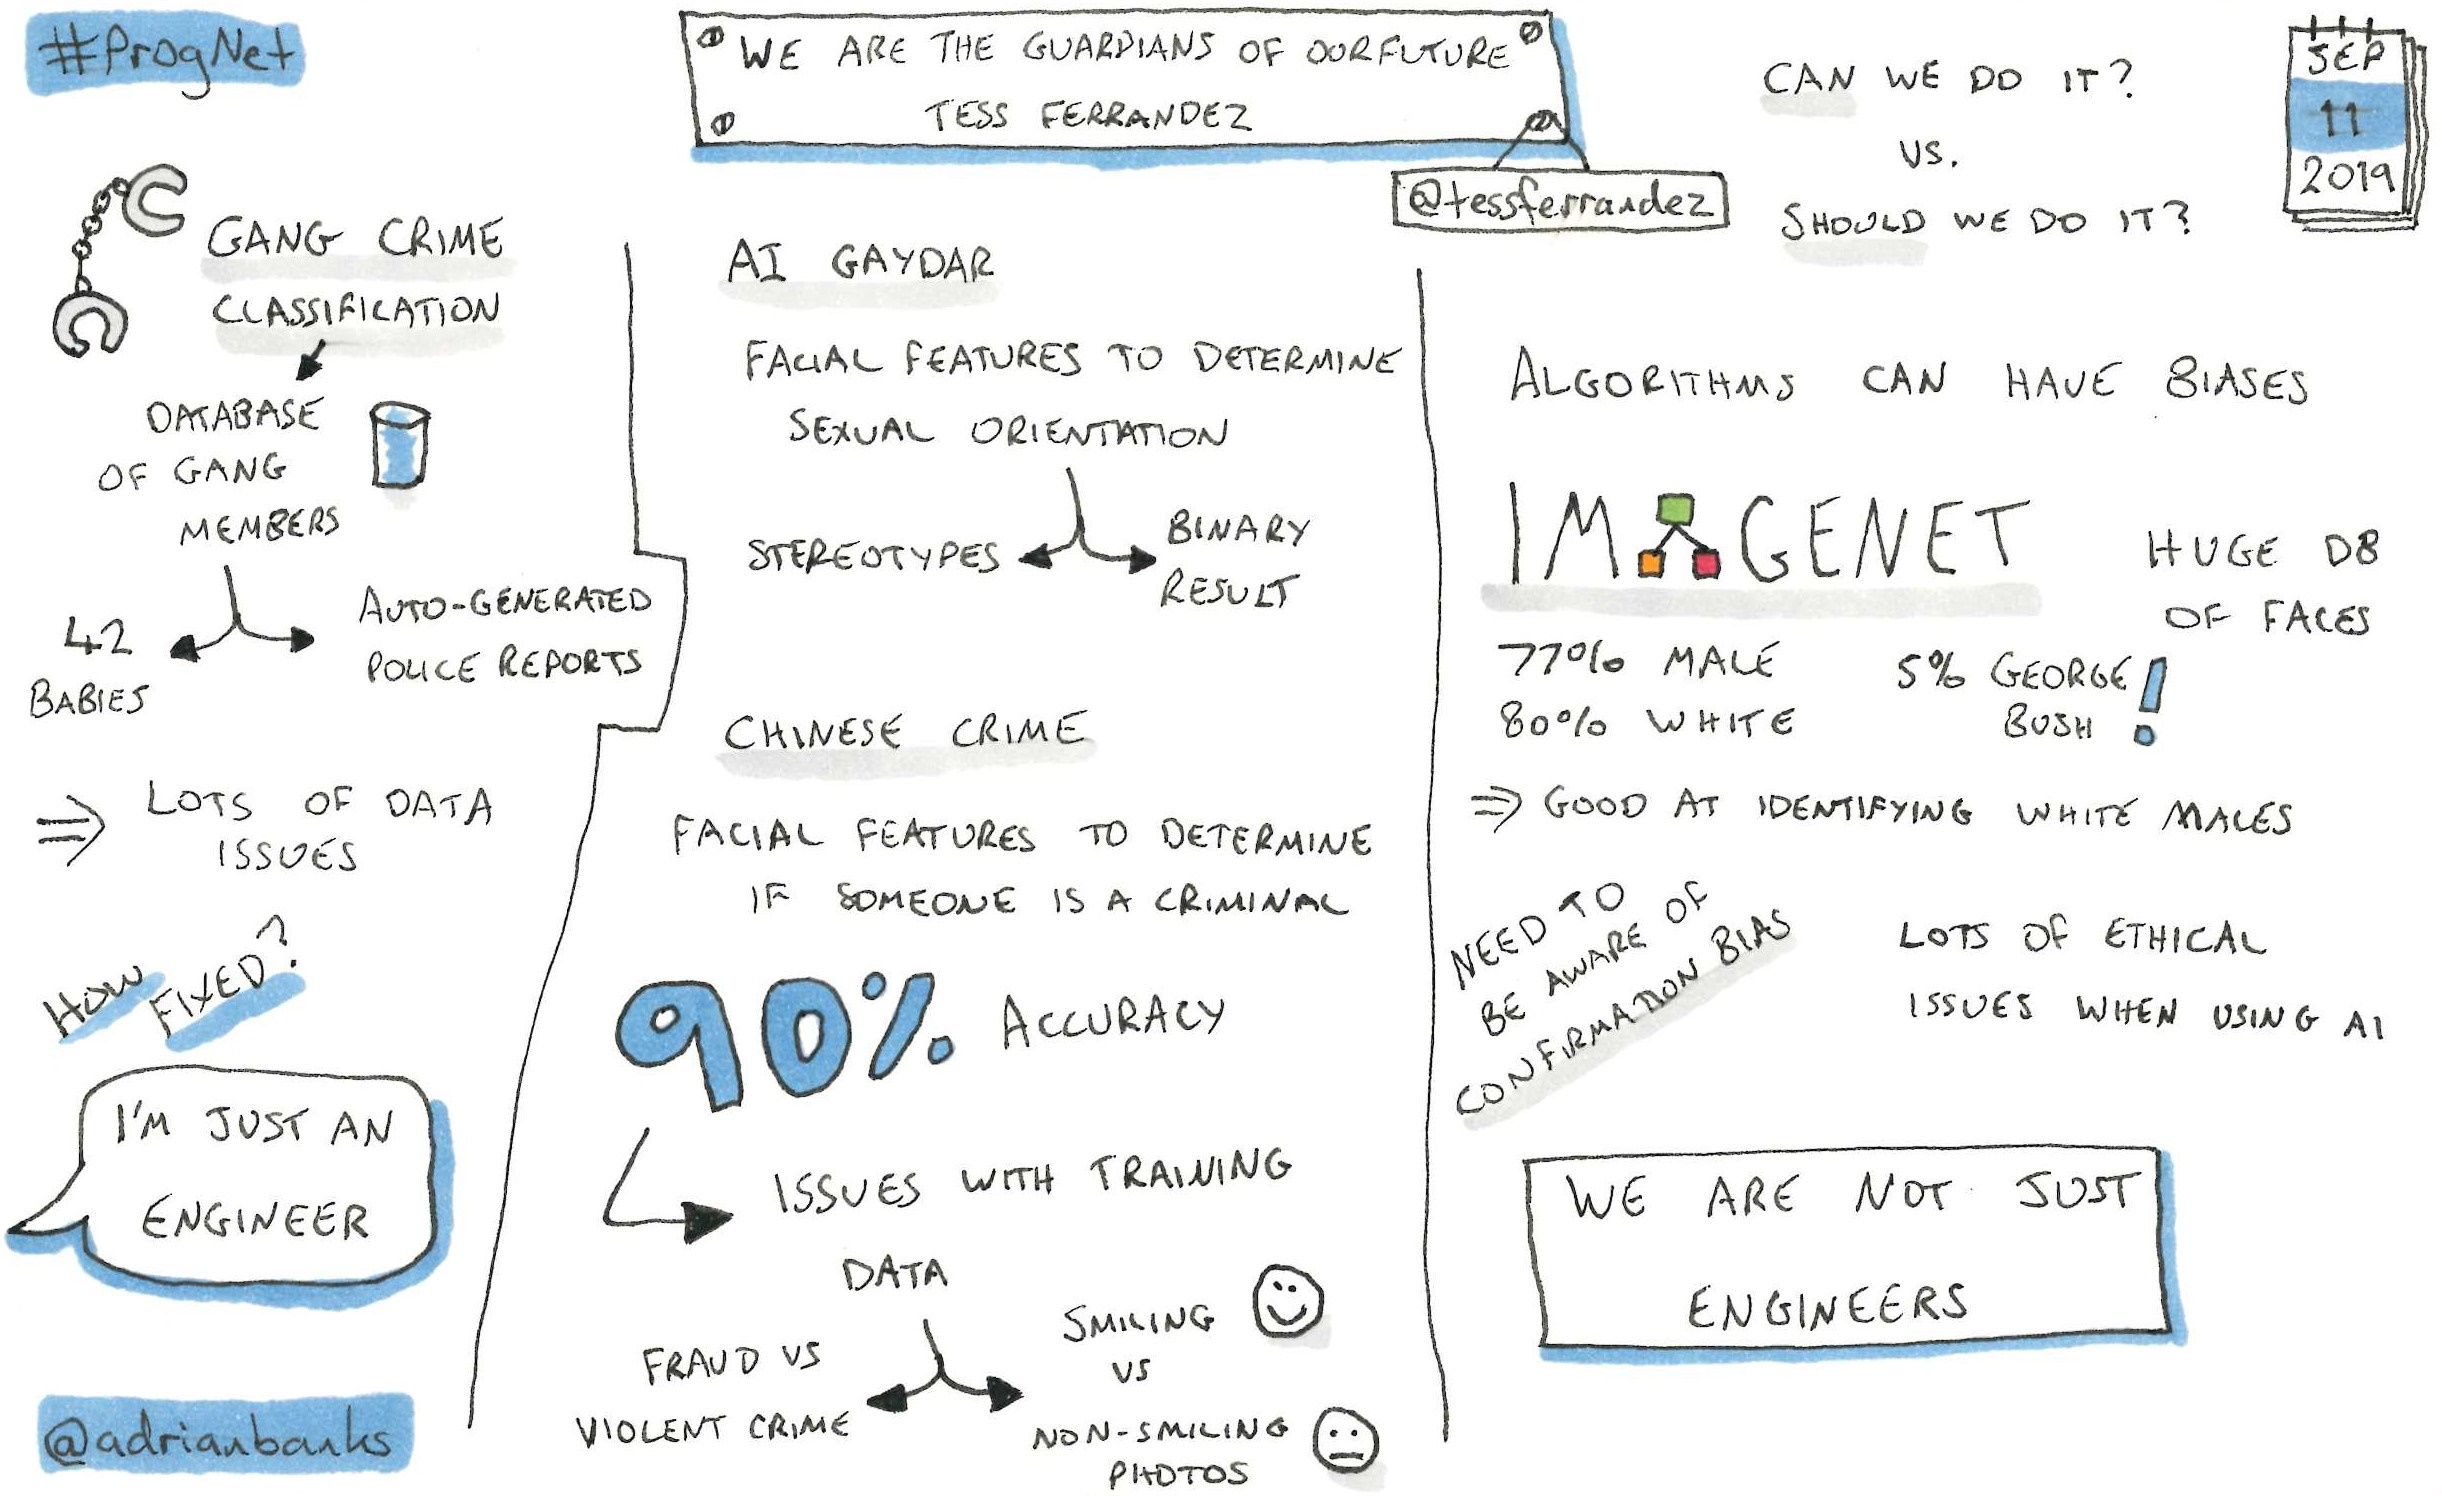 #ProgNet
WE ARE THE GUARDIANS OF OUR FUTURE
TESS FERRANDEZ
@tessferrandez
CAN WE DO IT?
VS.
SHOULD WE DO IT?
SEP
11
2019
GANG CRIME
CLASSIFICATION
DATABASE
OF GANG
MEMBERS
42
BABIES
AUTO-GENERATED
POLICE REPORTS
⇒ LOTS OF DATA
ISSUES
HOW
FIXED?
I'M JUST AN
ENGINEER
@adrianbanks
AI GAYDAR
FACIAL FEATURES TO DETERMINE
SEXUAL ORIENTATION
STEREOTYPES
BINARY
RESULT
CHINESE CRIME
FACIAL FEATURES TO DETERMINE
IF SOMEONE IS A CRIMINAL
90% ACCURACY
ISSUES WITH TRAINING
DATA
FRAUD VS
VIOLENT CRIME
SMILING
VS
NON-SMILING
PHOTOS
ALGORITHMS CAN HAVE BIASES
IMAGENET
HUGE DB
OF FACES
77% MALE
80% WHITE
5% GEORGE
BUSH!
⇒ GOOD AT IDENTIFYING WHITE MALES
NEED TO
BE AWARE OF
CONFIRMATION BIAS
LOTS OF ETHICAL
ISSUES WHEN USING AI
WE ARE NOT JUST
ENGINEERS